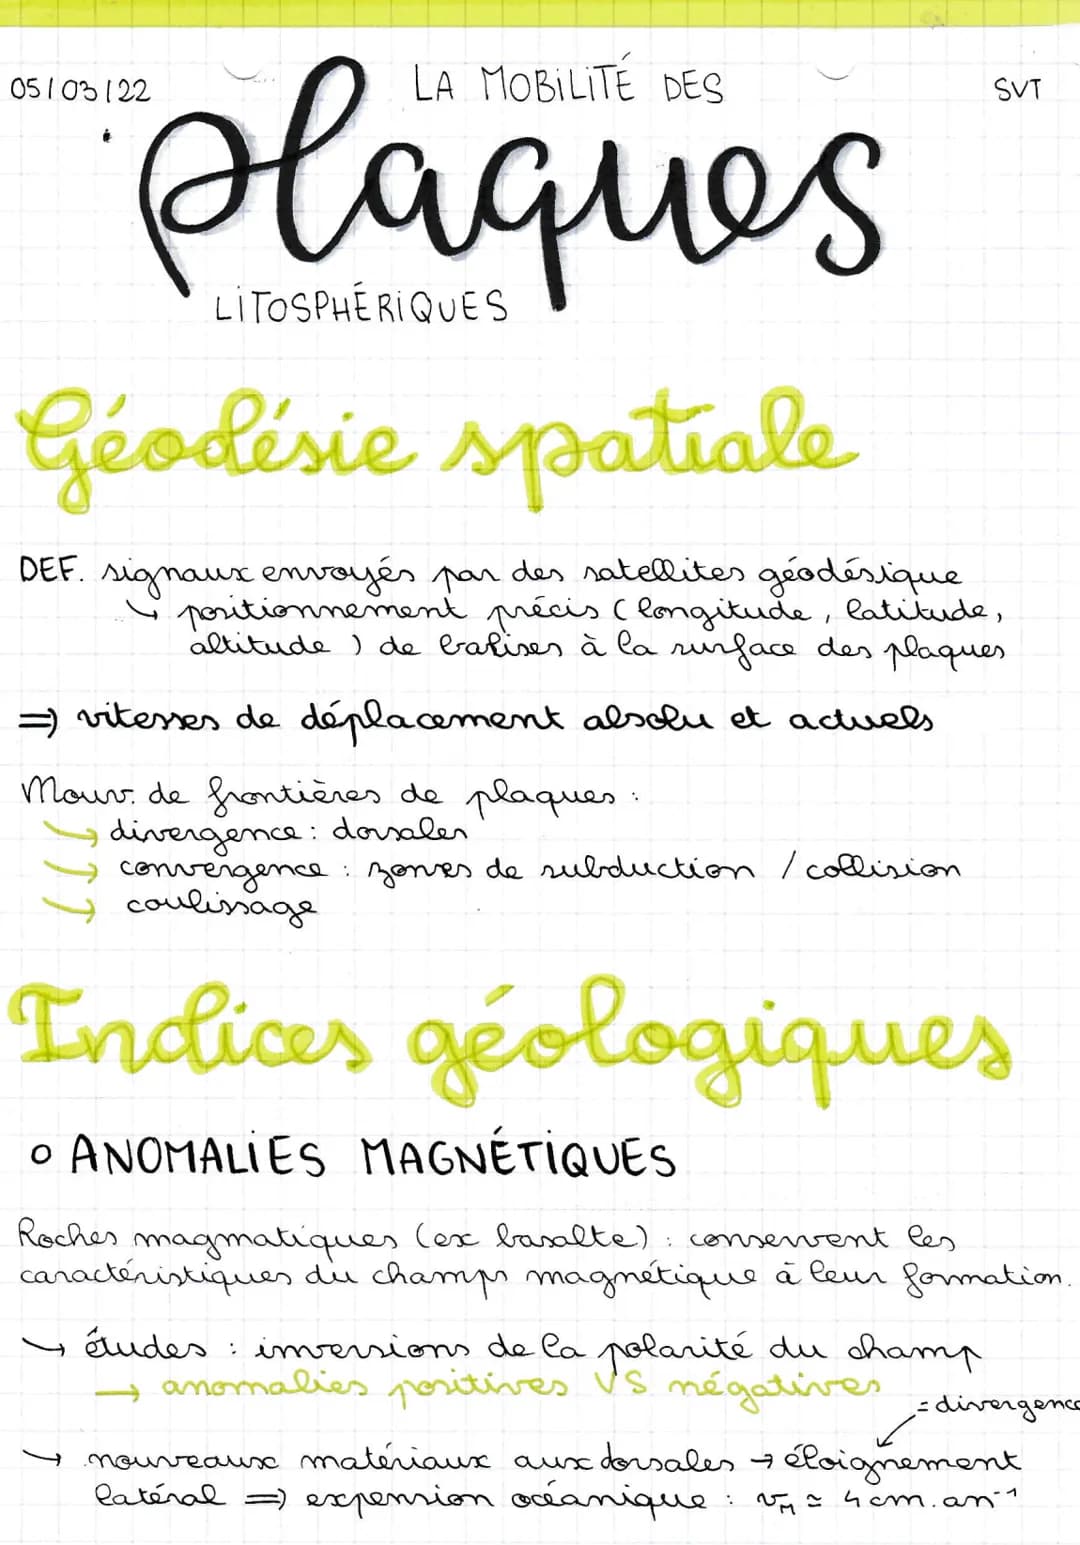 05/03/22
LA MOBILITÉ DES
SVT
plaques
LITOSPHÉRIQUES
Géodésie spatiale
DEF. signaux envoyés par des satellites géodésique
↳ positionnement précis (longitude, latitude,
altitude) de balises à la surface des plaques
⇒ vitesses de déplacement absolu et actuels
Mouv. de frontières de plaques :
↳ divergence : dorsales
↳ convergence : zones de subduction / collision
↳ coulissage
Indices géologiques
○ ANOMALIES MAGNÉTIQUES
Roches magmatiques (ex basalte) : conservent les
caractéristiques du champs magnétique à leur formation.
↳ études : inversions de la polarité du champ
→ anomalies positives VS négatives
= divergence
↳ nouveaux matériaux aux dorsales → éloignement
latéral ⇒ expension océanique : vM ≃ 4 cm.an⁻¹